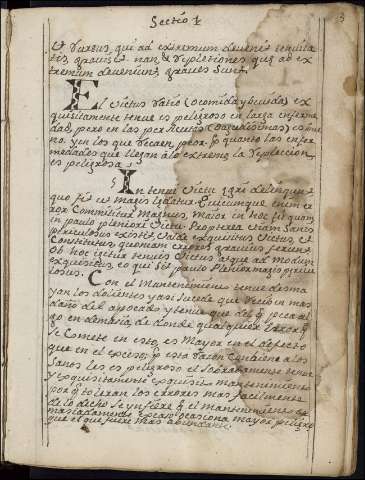 Sectio 1.
3
& Rursus, qui ad extremum devenit
tis, gravis. nan & repletiones quę ad ex
tremum deveniunt graves sunt.
El victus ratio (o comida y bevida) ex
quisitamente tenue es peligroso en larga enferme
dad, pero en las peracutas (o agudissimas) es bue
no. y en los que decaen, peor. quanto las enfer
medades que llegan a lo extremo la repleccion,
es peligrosa.
5 In tenui Victu ægri delinquunt
quo fit ut magis lædatur Cuicumque enim er
ror Committitur Magnus, maior in hoc fit quam
in paulo pleniore Victu. Propterea etiam Sanis
periculosus existit valde exquisitus Victus, &
Constitutus, quoniam errores gravius ferunt.
Ob hoc igitur tenuis Victus atque ad modum
exquisitus, eo qui sit paulo plenior magis pericu
losus. Con el Mantenimiento tenue desma
yan los dolientes y assi sucede que reciben mas
daño del apocado y tenue que del q̄ peca al
go en demasia, de donde qualquier error q̄
se Comete en esto, es Mayor en el defecto
que en el exceso; por esta raçon tambien a los
Sanos les es peligroso el sobradamente tenue
y exquisitamente exquisito mantenimiento
por q̄ toleran los errores mas facilmente
de lo dicho se ynfiere q̄ el mantenimiento de
masiadamente escaso ocasiona mayor peligro
que el que fuere mas abundante.